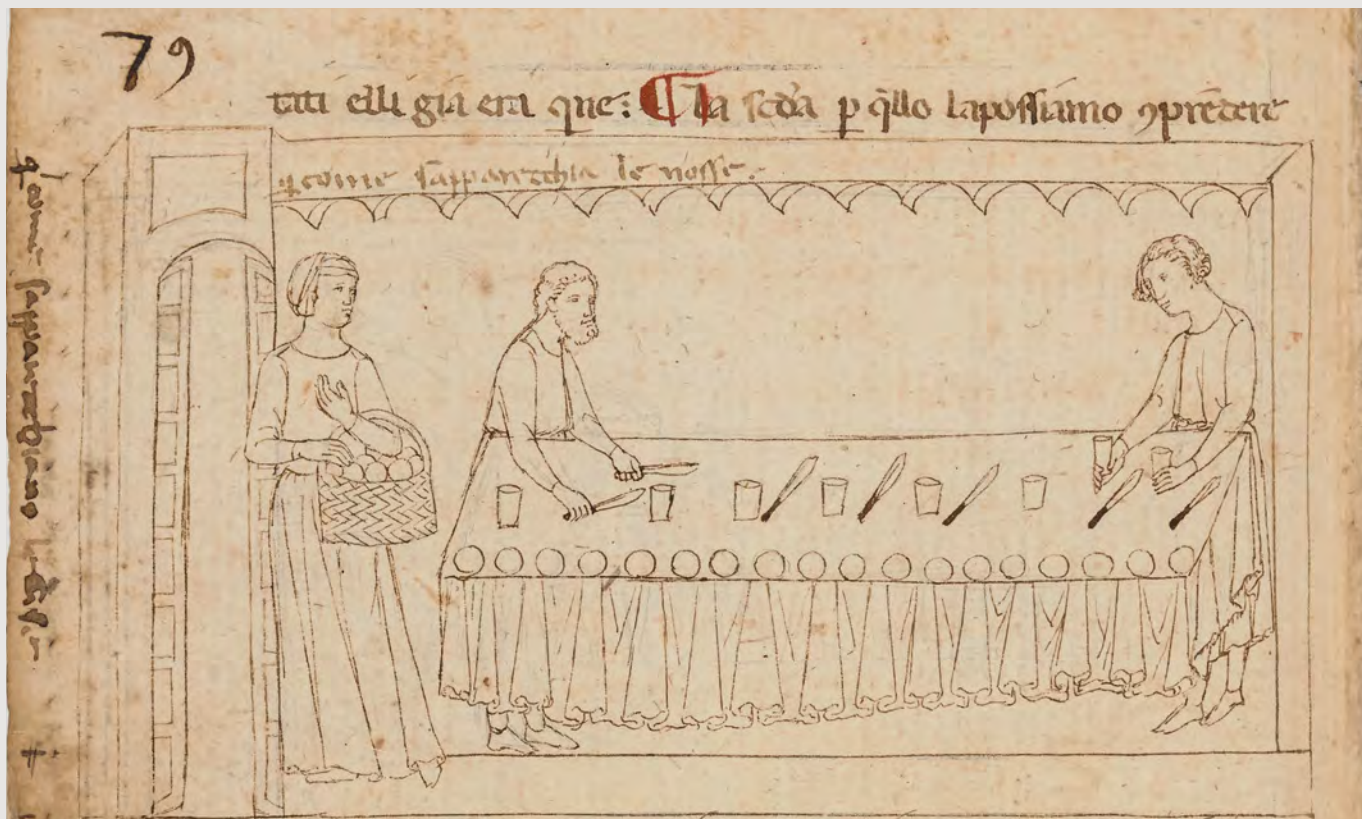 79
tati elli gia era que: ¶ La scd̄a p q̄llo la possiamo ꝯprēdere
come sapparecchia le nosse.
come sapparecchiano le